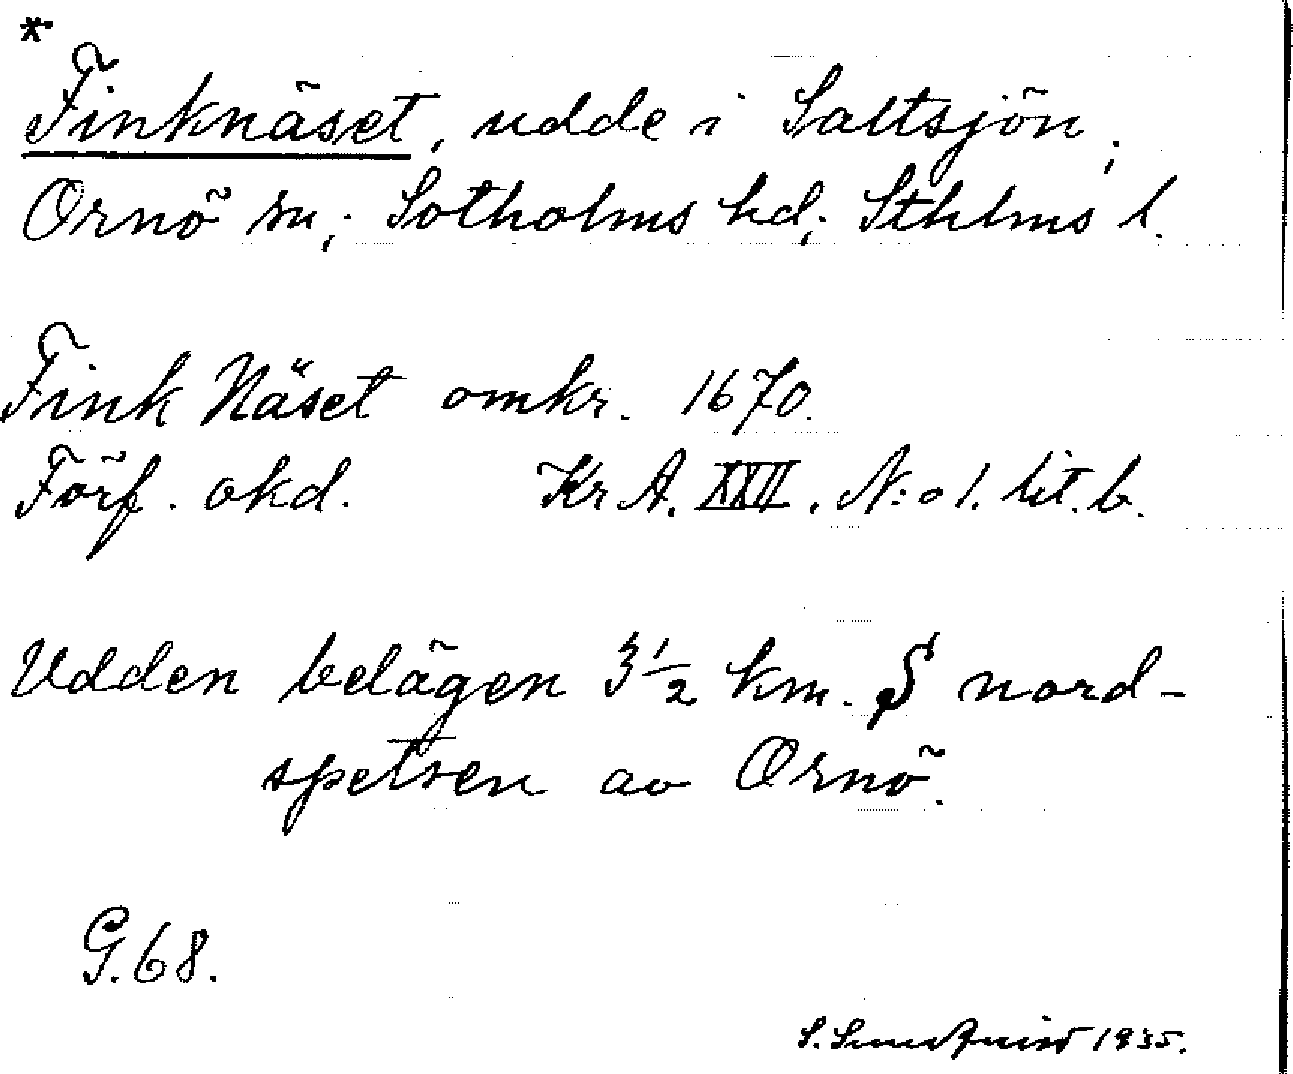 *
Finknäset, udde i Saltsjön,
Ornö sn, Sotholms hd, Sthlms l.
Fink Näset omkr. 1670.
Förf. okd. Kr A. XXII. N:o 1. lit. b.
Udden belägen 3 1/2 km. S nord-
spetsen av Ornö.
G. 68.
S. Sundquist 1935.